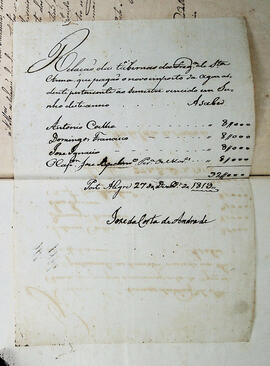 Relação das tabernas da Freg.ª de S.ta
Anna que pagão o novo imposto da agoa ar
dente pertencente ao semestre vencido em Ju
nho deste anno A saber
Antonio Coelho 8,000
Domingos Francisco 8,000
Joze Ignacio 8,000
Joze 8,000
32,000
Porto Alegre 27 de de 1813
Joze da Costa de Andrade